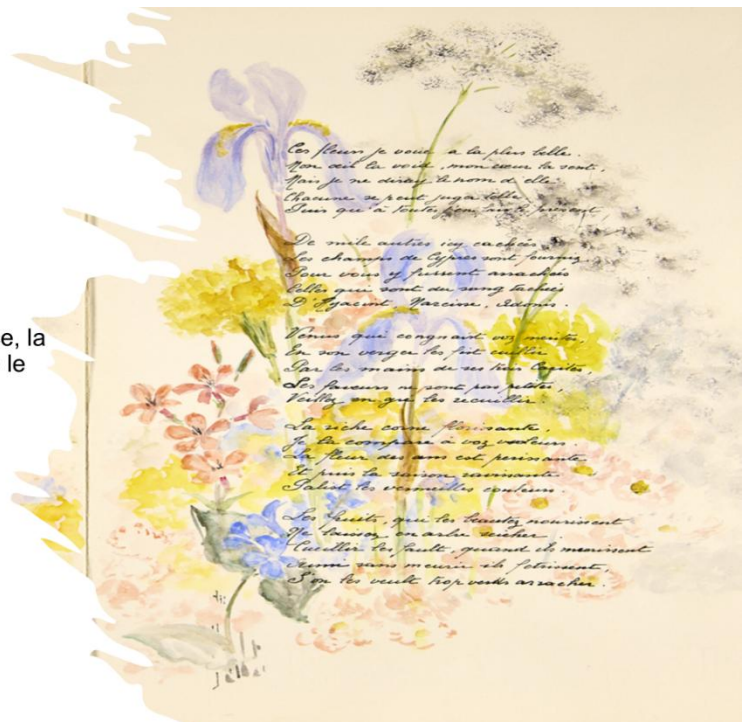 e, la
le
Ces fleurs je voue a la plus belle.
Mon œil la void, mon cœur la sent,
Mais je ne diray le nom d'elle
Chacune se peut juger telle
Puis que à toutes j'en fais présent.
De mile autres icy cachées
Les champs de Cypres sont fournis
Pour vous y furent arrachées
Celles qui sont du sang tachées
D'Hyacint, Narcisse, Adonis.
Venus qui congnaist voz merites,
En son verger les fist cueillir
Par les mains de ses trois Carites
Les faveurs ne sont pas petites,
Veillez en gré les recueillir
La riche corne florissante,
Je la compare à voz valeurs
La fleur des ans est perissante
Et puis la saison ravissante
Palist les vermeilles couleurs.
Les fruits, que les beautez nourissent
Ne laissez en arbre seicher.
Cueillir les fault, quand ils meurissent
sans meurir ils fletrissent,
S'on les veult trop verds arracher.